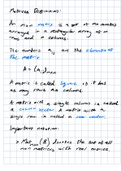 Matrices Definitions:
An m×n matrix is a set of mn numbers
arranged in a rectangular array of m
rows and n columns.
The numbers aᵢⱼ are the elements of
the matrix
A = (aᵢⱼ)ₘₓₙ
A matrix is called square if it has
as many rows as columns.
A matrix with a single column is called
a column vector. A matrix with a
single row is called a row vector.
Important notation:
denotes the set of all
matrices with real entries.